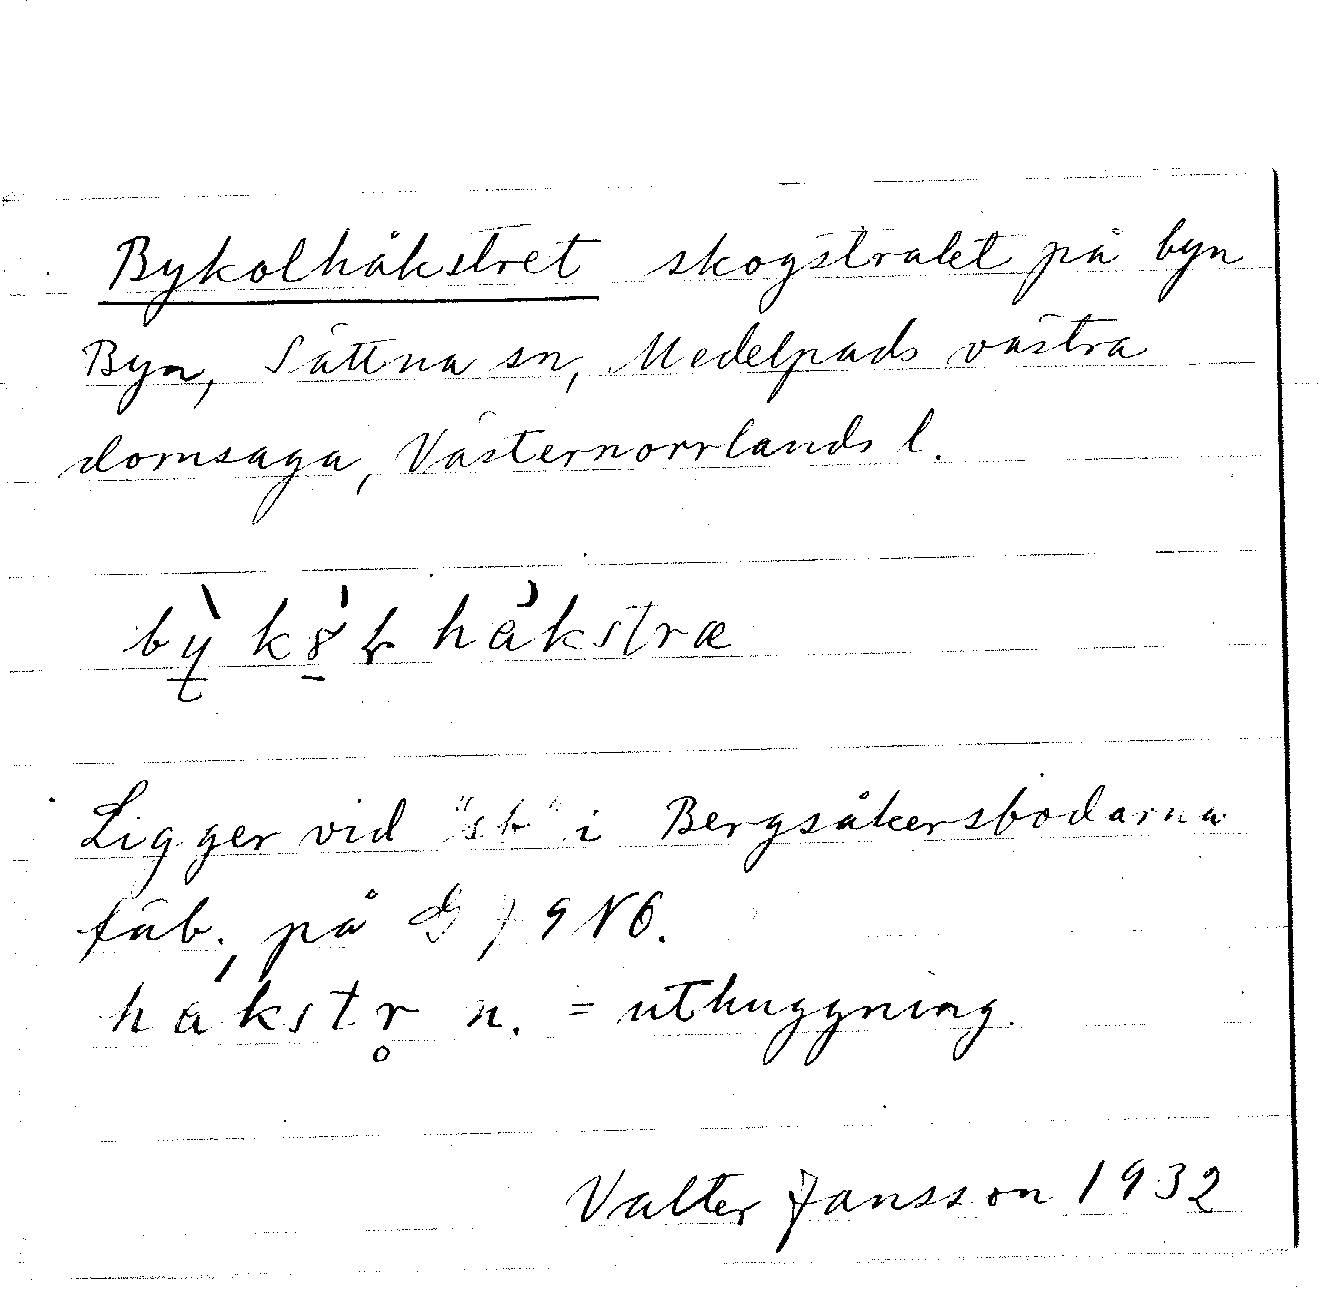 Bykolhåkstret skogstrakt på byn
Byn, Sättna sn, Medelpads västra
domsaga, Västernorrlands l.
håkstræ
Ligger vid i Bergsåkersbodarna
fäb., på 9 N6.
håkstr̥ n. = uthuggning.
Valter Jansson 1932